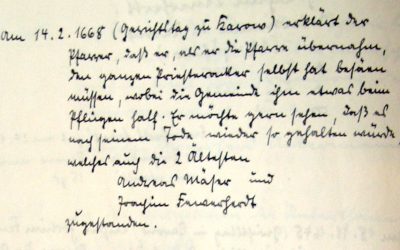 Am 14.2.1668 (Gerichtstag zu Karow) erklärt der
Pfarrer, daß er, als er die Pfarre übernahm,
den ganzen Priesteracker selbst hat besäen
müssen, wobei die Gemeinde ihm etwas beim
Pflügen half. Er möchte gern sehen, daß es
nach seinem Tode wieder so gehalten würde,
welches auch die 2 Ältesten
Andreas Mäser und
Joachim Fewerherdt
zugestanden.